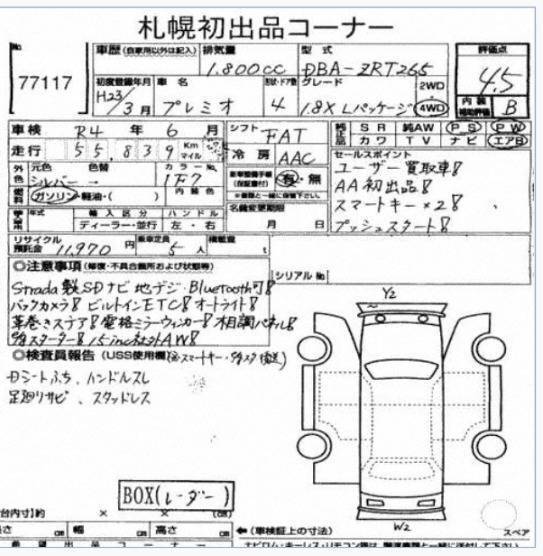 札幌初出品コーナー
77117
車歴 (自家用以外は記入) 排気量 型式 評価点
1.800cc DBA-ZRT265 4.5
初度登録年月 車名 形状・ドア数 グレード 2WD 内装
H23/3月 プレミオ 4 1.8X Lパッケージ 4WD B
車検 R4年6月 シフト FAT 純正品 SR 純AW PS PW
走行 55,839 Km マイル 冷房 AAC カワ TV ナビ エアB
外色 元色 色替 カラーNo. セールスポイント
シルバー→ 1F7 内装色 有・無 ユーザー買取車!
燃料 ガソリン・軽油・( ) AA初出品!
年式 輸入区分 ハンドル 名義変更期限 スマートキー×2!
ディーラー・並行 左・右 月 日 プッシュスタート!
リサイクル預託金 11,970円 乗車定員 5人 積載量 t
◎注意事項 (修復・不具合箇所および状態等) シリアルNo.
Strada製SDナビ 地デジ・Bluetooth可!
バックカメラ! ビルトインETC! オートライト!
革巻きステア! 電格ミラーウィンカー! 木目調パネル!
スターター! 15inc社外AW!
◎検査員報告 (USS使用欄)
Dシートふち、ハンドルスレ
足廻リサビ、スタッドレス
Y2
BOX(レーダー)
W2
台内寸)約 × × (cm)
長さ cm 幅 cm 高さ cm ←(車検証上の寸法) スペア